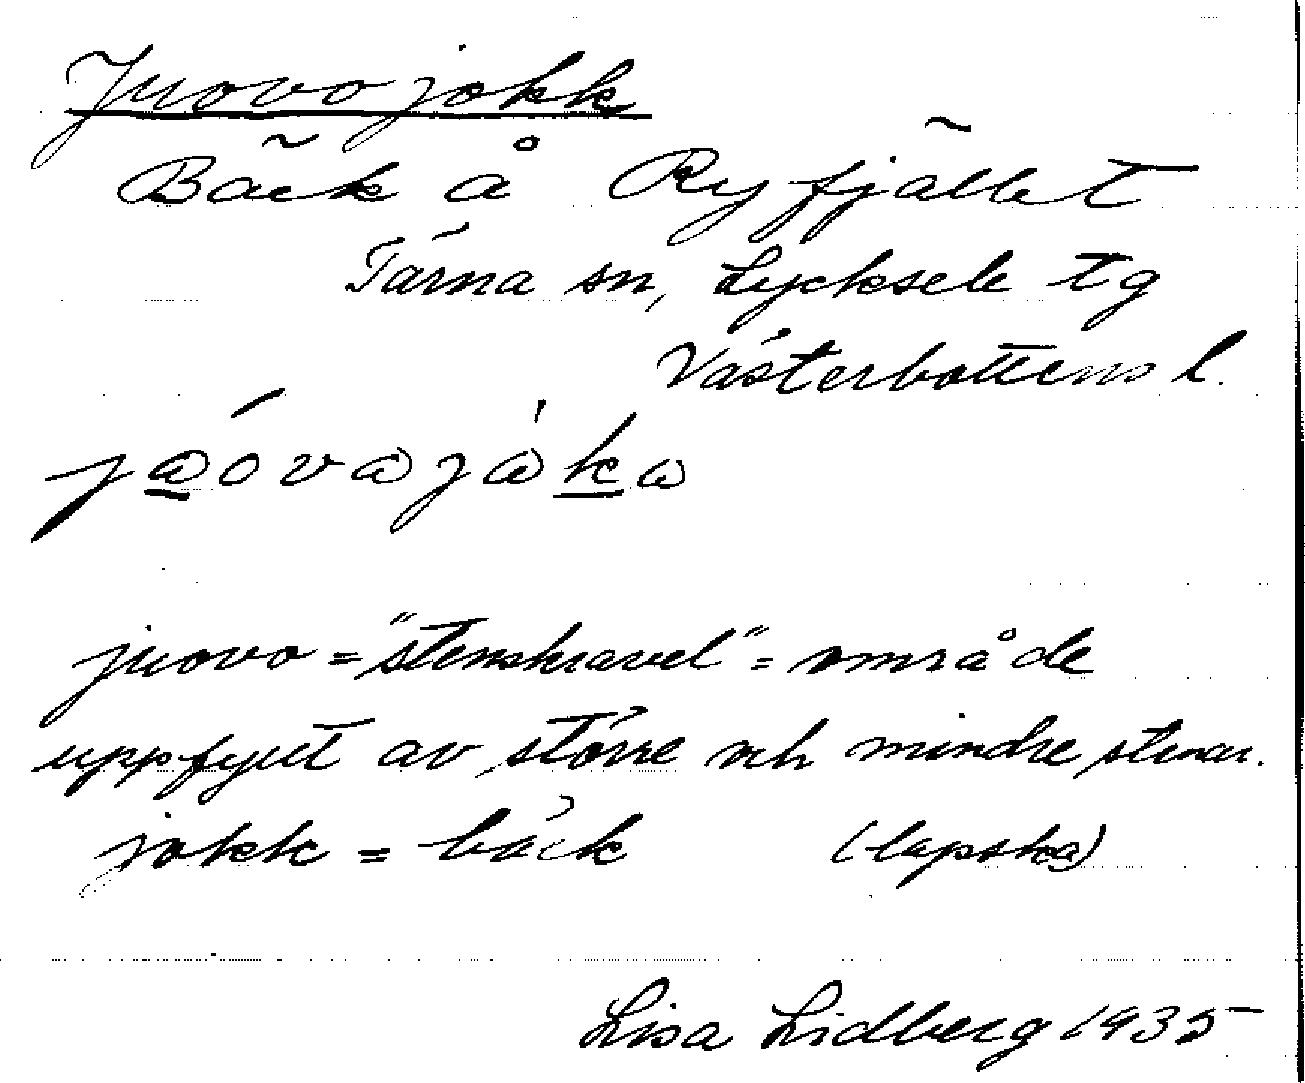 Juovojokk
Bäck å Ryfjället
Tärna sn, Lycksele tg
Västerbottens l.
juovo = "stenskravel" = område
uppfyllt av större och mindre stenar.
jokk = bäck (lapska)
Lisa Lidberg 1935